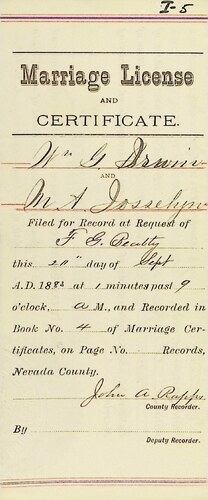 I-5
Marriage License
AND
CERTIFICATE.
Wm G Irwin
AND
M A Josselyn
Filed for Record at Request of
F G Beatty
this 20th day of Sept
A.D. 1883 at 1 minutes past 9
o'clock, a M., and Recorded in
Book No. 4 of Marriage Cer-
tificates, on Page No. Records,
Nevada County.
John A. Rapp
County Recorder.
By
Deputy Recorder.